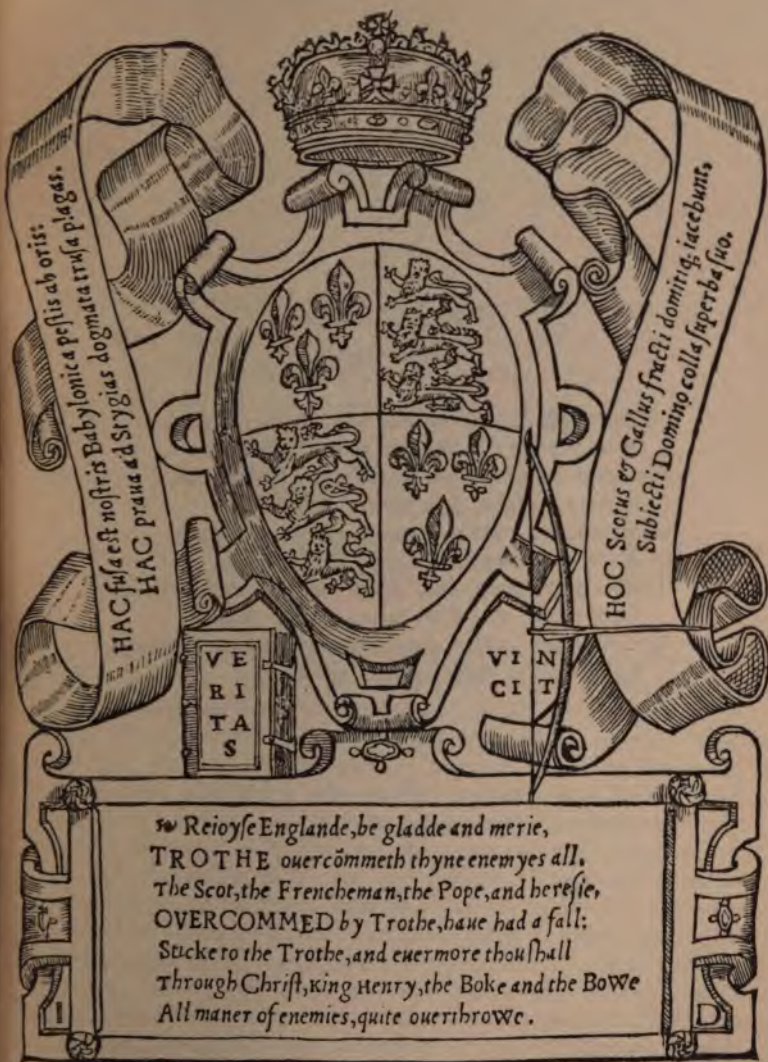 HAC fuſa eſt noſtris Babylonica peſtis ab oris:
HAC praua ad Stygias dogmata truſa plagas.
HOC Scotus & Gallus fracti domitiq; iacebunt,
Subiecti Domino colla ſuperba ſuo.
VE
RI
TA
S
VIN
CIT
Reioyſe Englande, be gladde and merie,
TROTHE ouercōmeth thyne enemyes all,
The Scot, the Frencheman, the Pope, and hereſie,
OVERCOMMED by Trothe, haue had a fall:
Sticke to the Trothe, and euermore thou ſhall
Through Chriſt, King Henry, the Boke and the Bowe
All maner of enemies, quite ouerthrowe.
I D